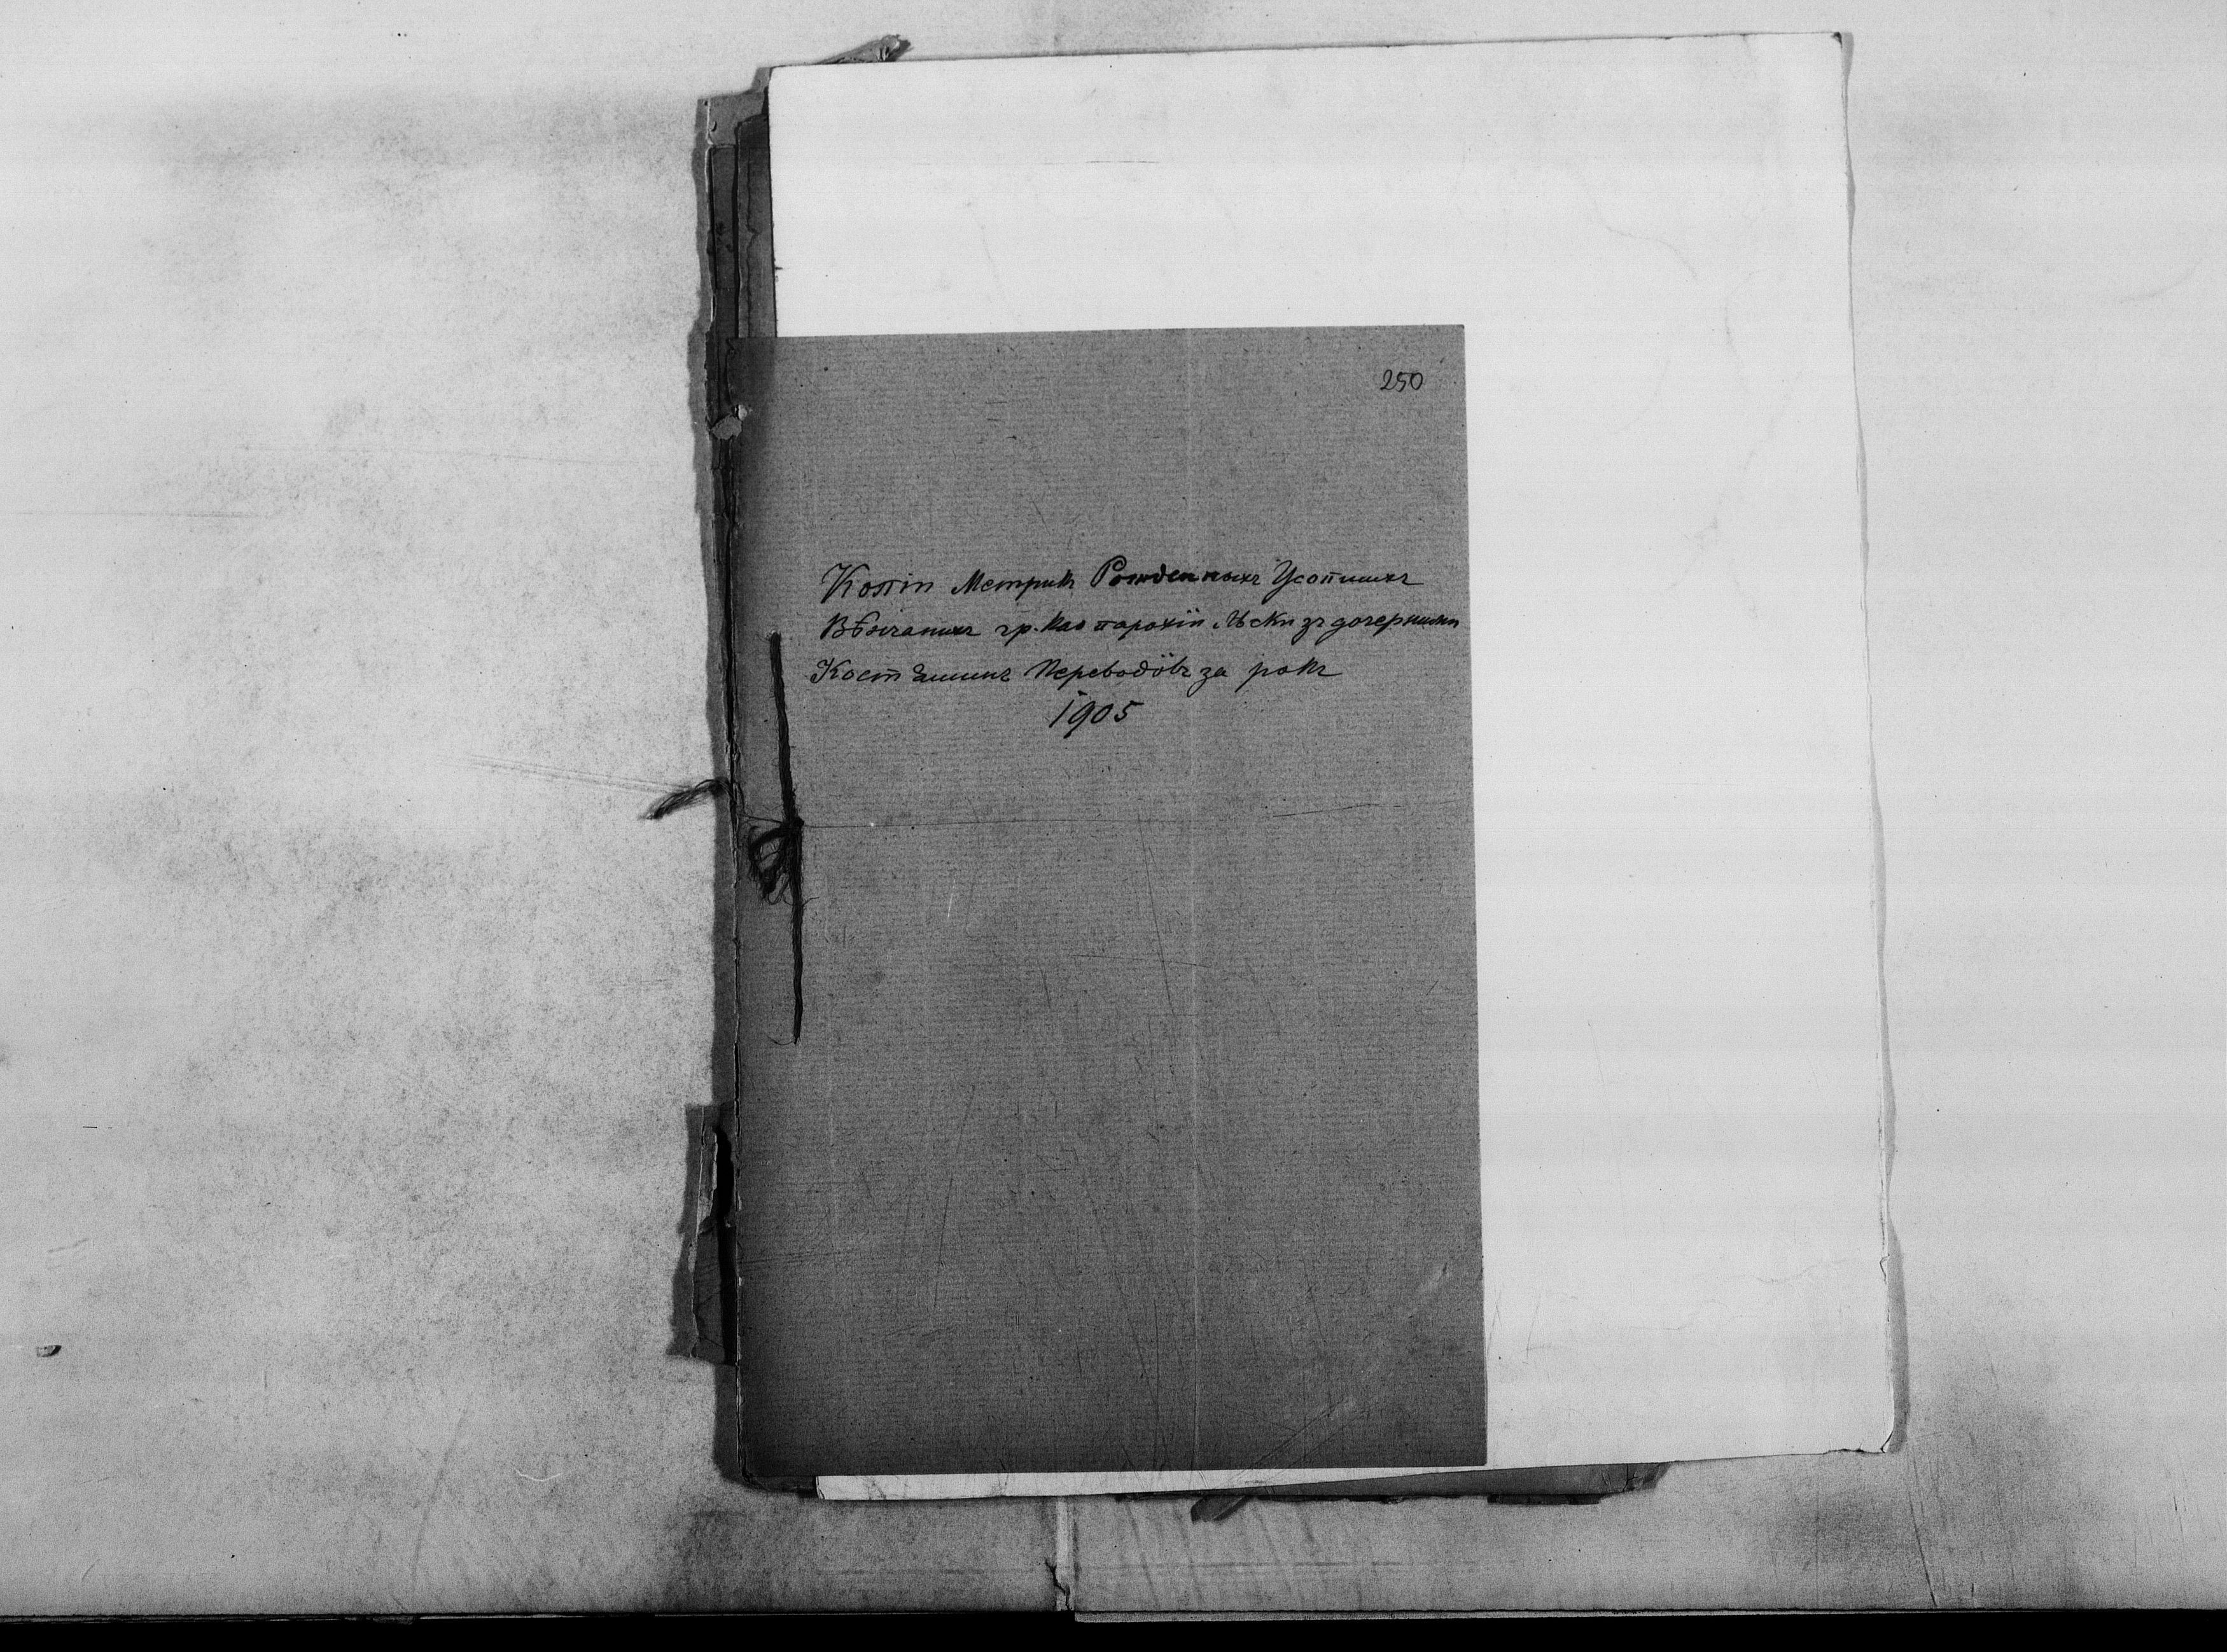 250
Копіи Метрикъ Рожденныхъ Усопшихъ
Вѣнчаныхъ гр. као парохіи Лѣски зъ дочерными
Перевозôвъ за рокъ
1905